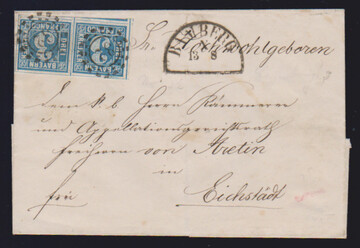 BAYERN
FRANCO
BAMBERG
13 8
Sr. Hochwohlgeboren
dem k. b. Herrn Kämmerer
und Appellationsgerichtsrath
Freiherrn von Aretin
in
Eichstädt
frei